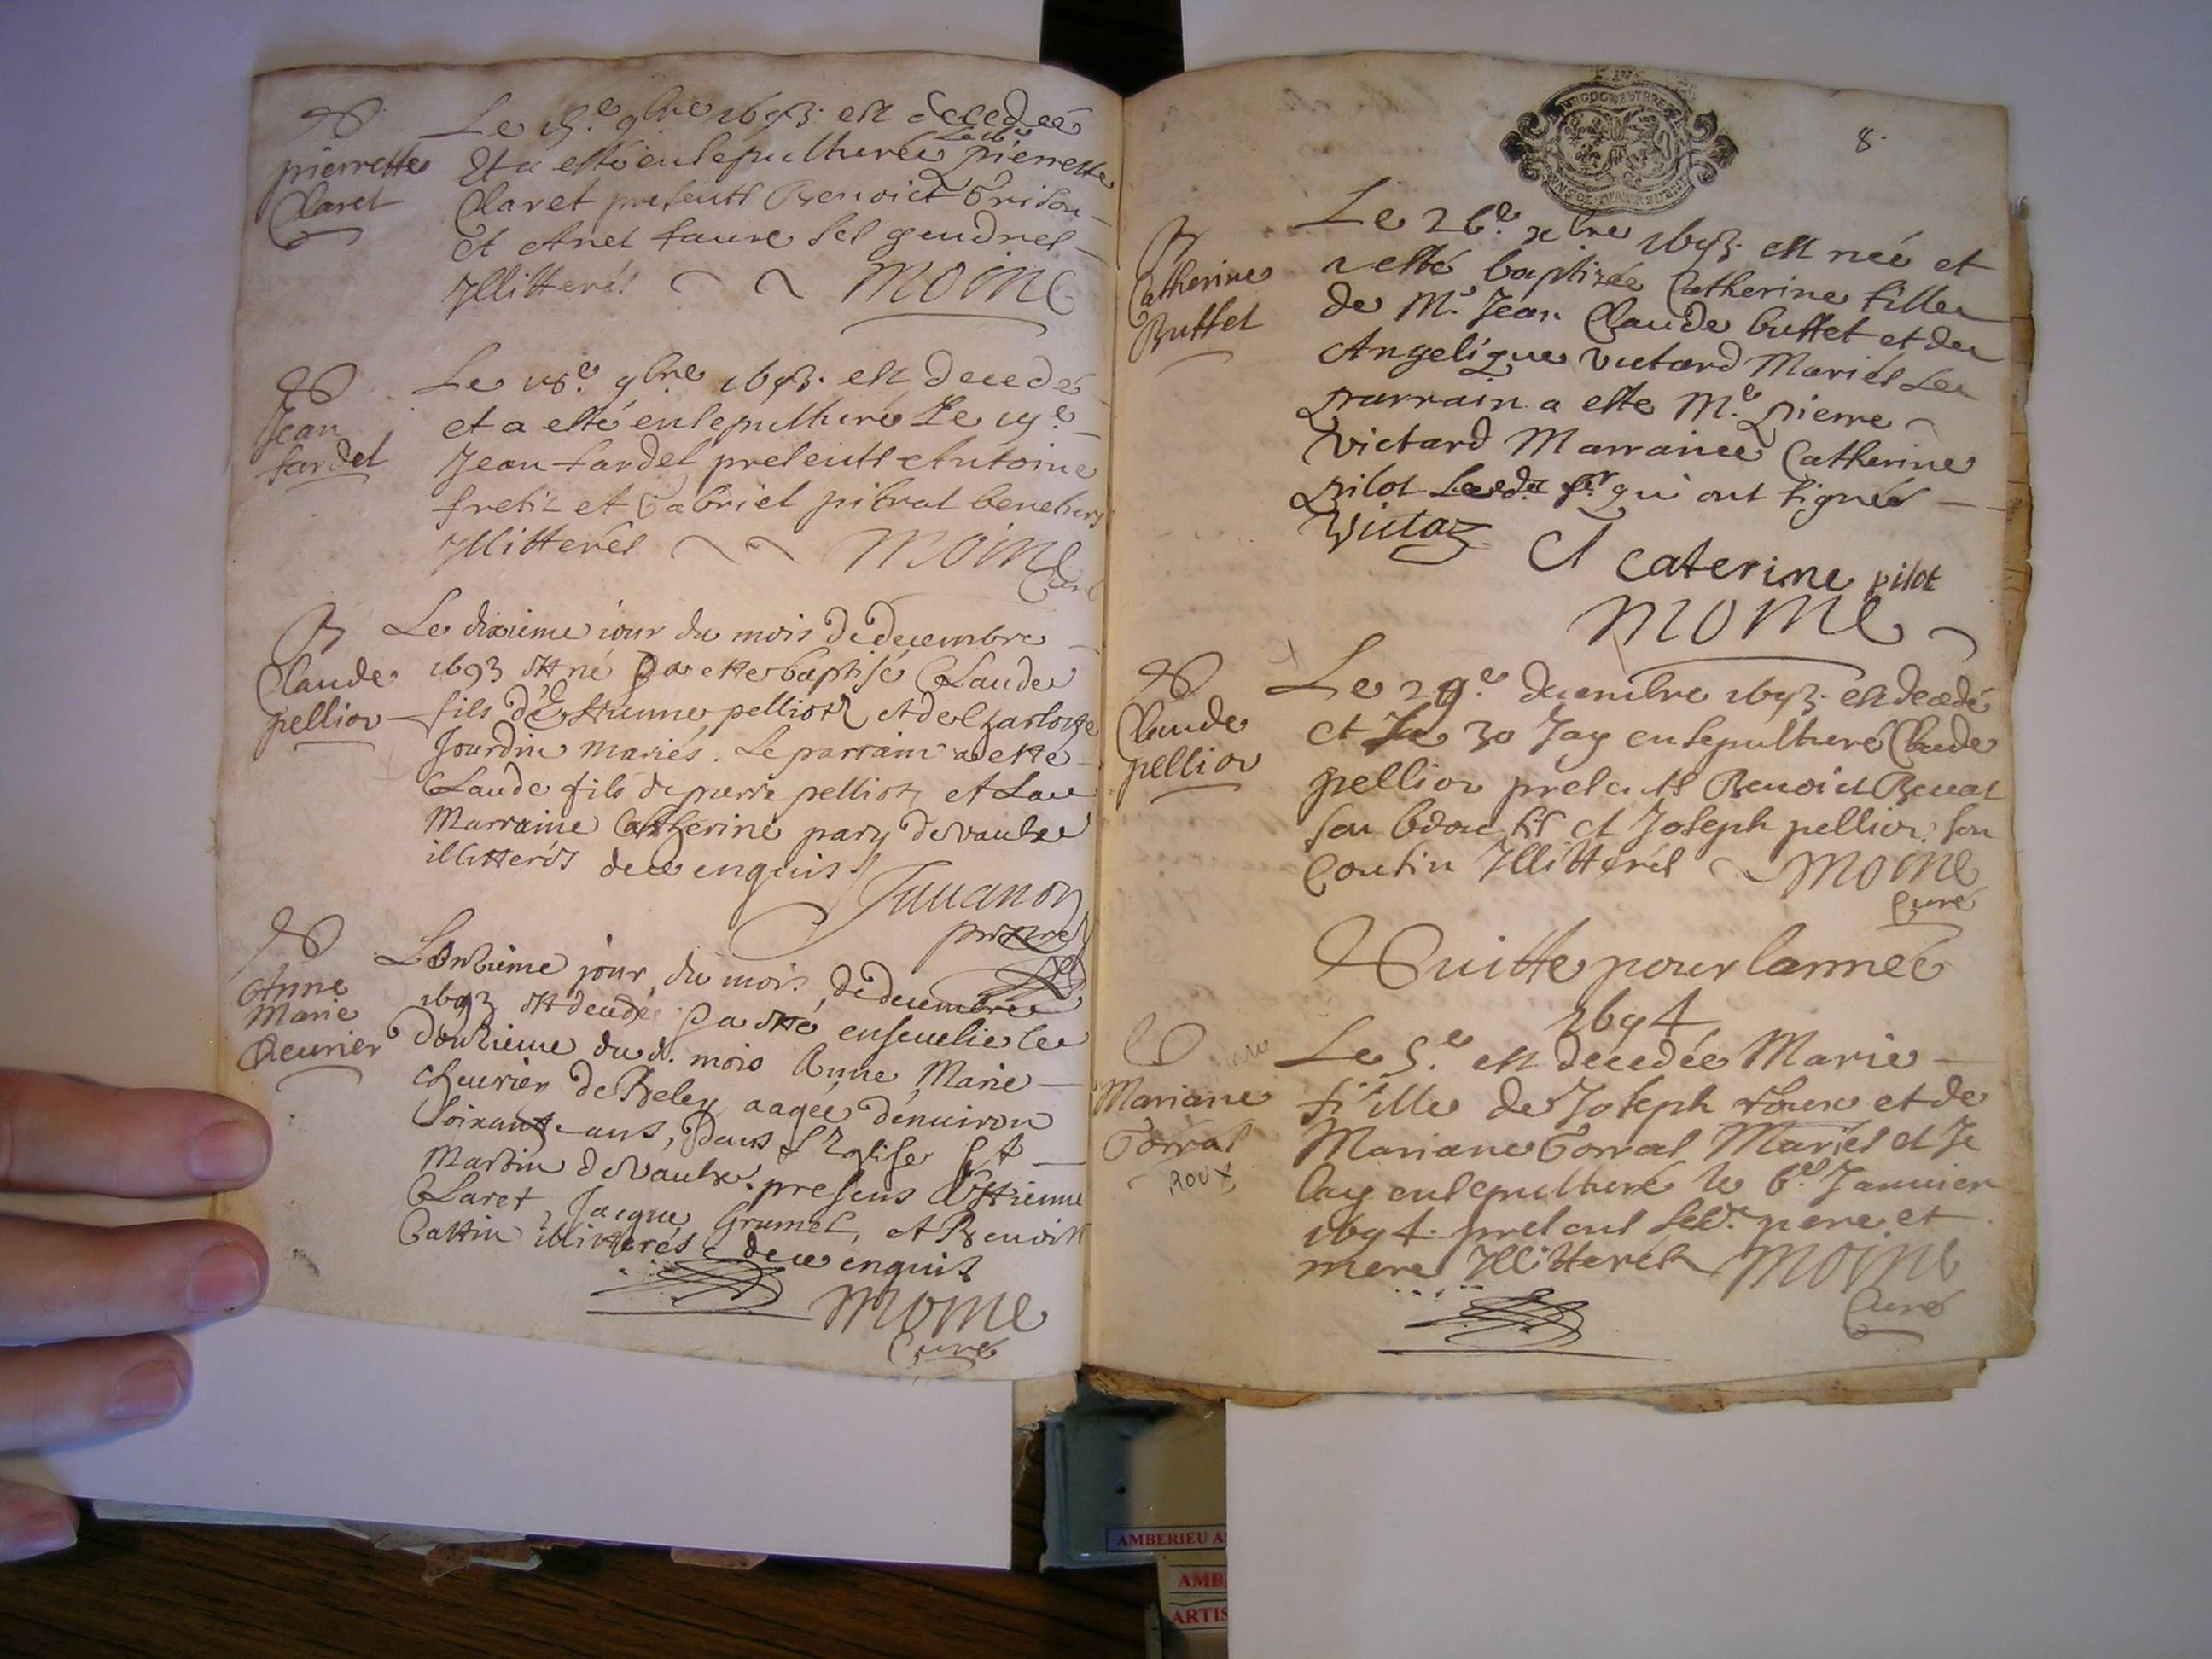 pierrette
Claret
Le 15.e 9bre 1693. est decedeé
Et a esté ensepulturée Le 16e pierrette
Claret presents Benoict Brison
et Anet faure ses gendres
Illitterés Moine
Jean
fardel
Le 18.e 9bre 1693. est decedé
et a esté ensepulturé Le 19.e
Jean fardel presents Antoine
fretiz et Gabriel pitrat
Illitterés Moine
Curé
B
Claude
pellior
Le dixieme iour du mois de decembre
1693 est né & a esté baptisé Claude
fils d'Estienne pellior et de Charlotte
Jourdin mariés. Le parrain a esté
Claude fils de pierre pellior et La
Marraine Catherine pary de vaulxe
illitterés de ce enquis
Juuanon
Anne
Marie
Cheurier
L'onzieme jour du mois de decembre
1693 est decedée & a esté enseuelie le
douzieme du d. mois Anne Marie
Cheurier de Beley aagée d'enuiron
soixante ans, dans L'Eglise St
Martin de Vaulxe. presens Estienne
Claret, Jacque Grumel, et Benoist
Cattin illitterés de ce enquis
Moine
Curé
8.
B
Catherine
Buffet
Le 26.e xbre 1693. est neé et
a esté baptizée Catherine fille
de M.e Jean Claude buffet et de
Angelique victard Mariés Le
parrain a esté M.e pierre
Victard Marraine Catherine
pilot qui ont signés
Victaz
Caterine pilot
Moine
Claude
pellior
Le 29.e decembre 1693. est decedé
et Le 30 Jay ensepulturé Claude
pellior presents Benoict
son et Joseph pellior son
Cousin Illitterés Moine
Curé
Suitte pour lanneé
1694
Mariane
Torral
Roux
Le 5.e est decedée Marie
fille de Joseph roux et de
Mariane Torral Mariés et Je
lay ensepulturé le 6.e Januier
1694. present sesd. pere et
mere Illitterés Moine
Curé
AMBERIEU A
AMB
ARTIS